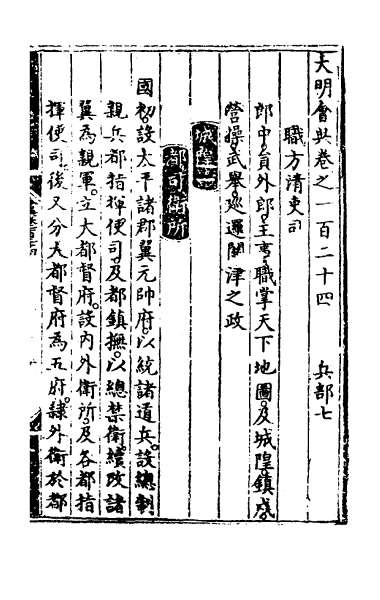 大明會典卷之一百二十四 兵部七
職方清吏司
郎中員外郎主事職掌天下地圖及城隍鎮戍
營操武舉廵邏關津之政
城隍一
都司衛所
國初設太平諸郡翼元帥府以統諸道兵設總制
親兵都指揮使司及都鎮撫以總禁衛續改諸
翼為親軍立大都督府設内外衛所及各都指
揮使司後又分大都督府為五府隷外衛於都